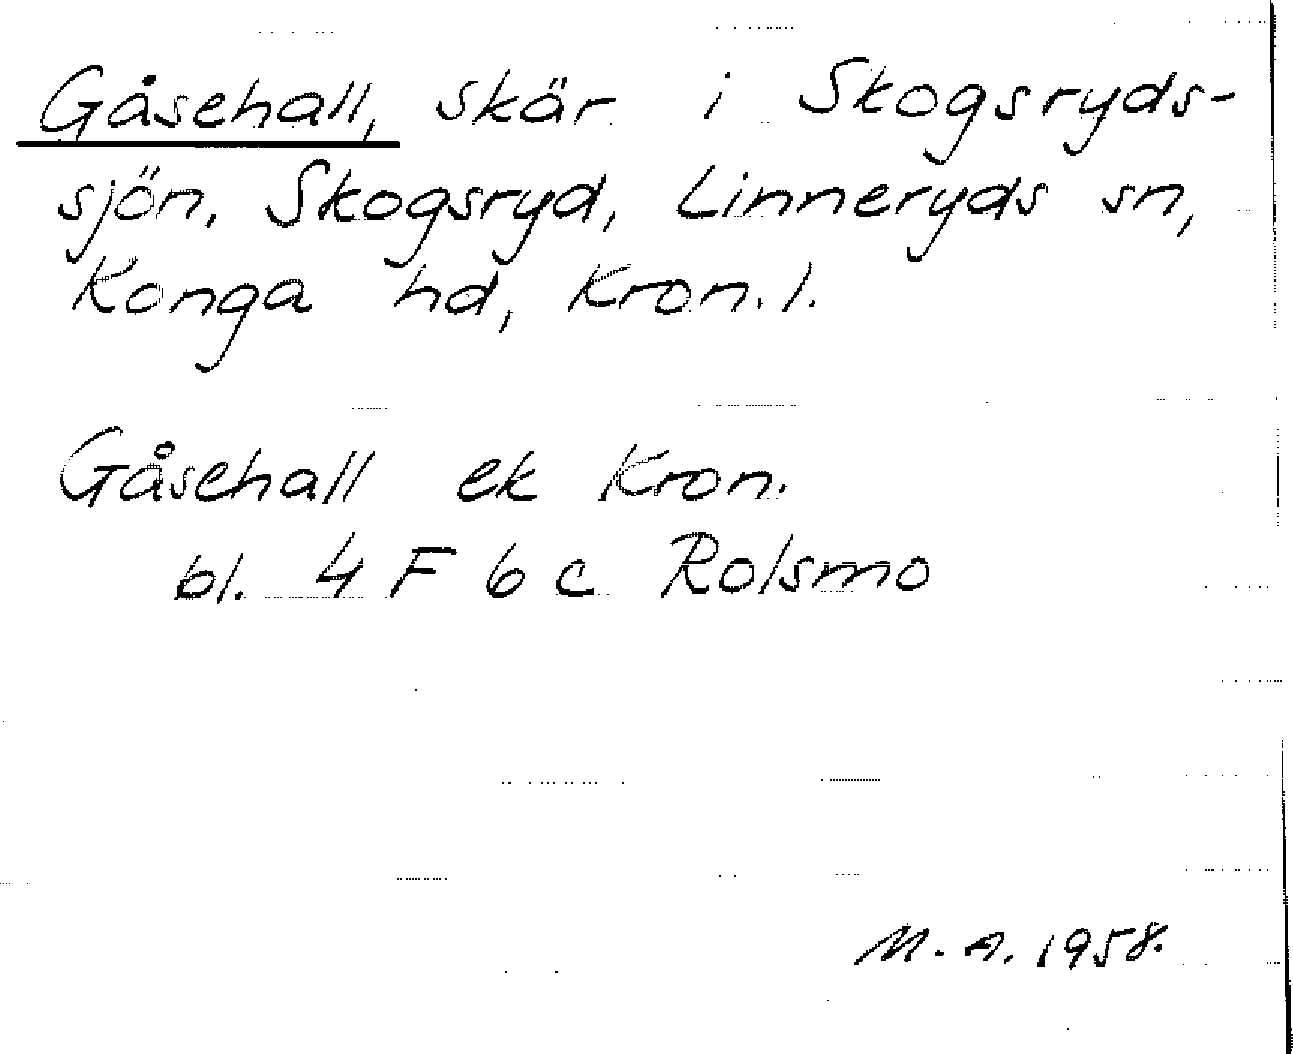 Gåsehall, skär i Skogsryds-
sjön, Skogsryd, Linneryds sn,
Konga hd, Kron. l.
Gåsehall ek Kron.
bl. 4 F 6 c Rolsmo
M. A. 1958.